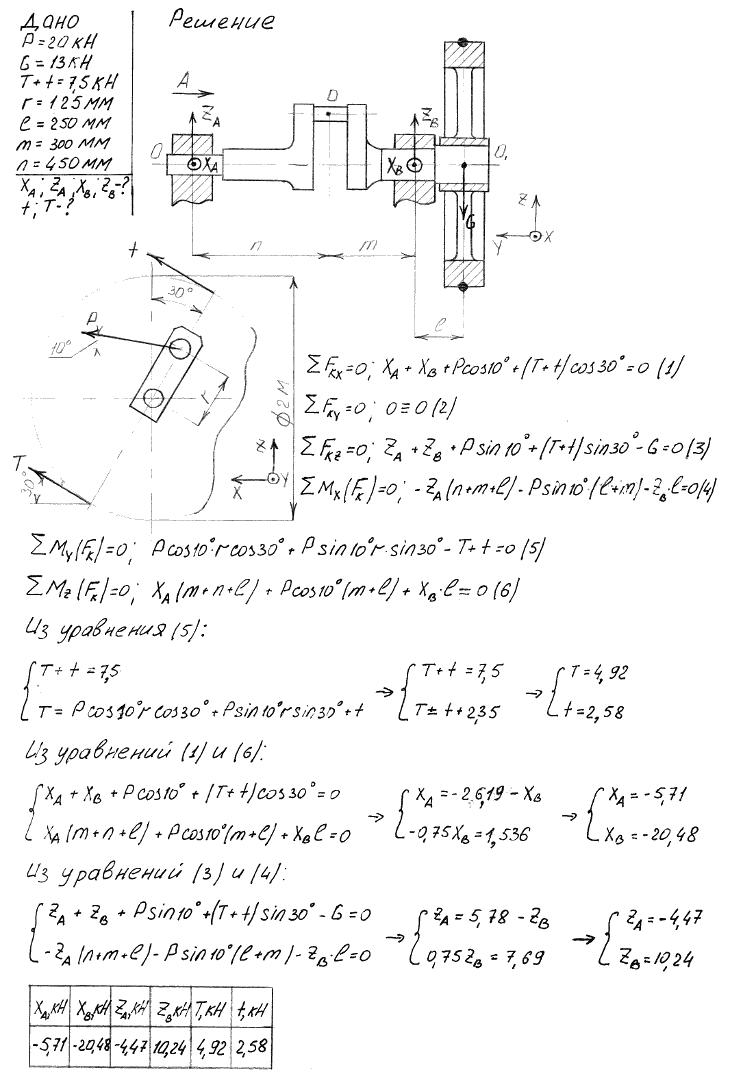 Дано
P = 20 кН
G = 13 кН
T + t = 7,5 кН
r = 125 мм
l = 250 мм
m = 300 мм
n = 450 мм
X_A; Z_A; X_B; Z_B - ?
t; T - ?
Решение
A
D
Z_A
Z_B
O
X_A
X_B
O₁
G
Z
Y
X
n
m
l
t
30°
P
10°
r
ϕ2м
T
30°
Z
X
Y
ΣF_KX = 0; X_A + X_B + Pcos10° + (T+t)cos30° = 0 (1)
ΣF_KY = 0; 0 ≡ 0 (2)
ΣF_KZ = 0; Z_A + Z_B + Psin10° + (T+t)sin30° - G = 0 (3)
ΣM_X(F_K) = 0; -Z_A(n+m+l) - Psin10°·(l+m) - Z_B·l = 0 (4)
ΣM_Y(F_K) = 0; Pcos10°·rcos30° + Psin10°r·sin30° - T + t = 0 (5)
ΣM_Z(F_K) = 0; X_A(m+n+l) + Pcos10°(m+l) + X_B·l = 0 (6)
Из уравнения (5):
{T + t = 7,5 → {T + t = 7,5 → {T = 4,92
T = Pcos10°rcos30° + Psin10°rsin30° + t T = t + 2,35 t = 2,58
Из уравнений (1) и (6):
{X_A + X_B + Pcos10° + (T+t)cos30° = 0 → {X_A = -26,19 - X_B → {X_A = -5,71
X_A(m+n+l) + Pcos10°(m+l) + X_B l = 0 -0,75X_B = 1,536 X_B = -20,48
Из уравнений (3) и (4):
{Z_A + Z_B + Psin10° + (T+t)sin30° - G = 0 → {Z_A = 5,78 - Z_B → {Z_A = -4,47
-Z_A(n+m+l) - Psin10°(l+m) - Z_B·l = 0 0,75Z_B = 7,69 Z_B = 10,24
X_A,кН X_B,кН Z_A,кН Z_B,кН T,кН t,кН
-5,71 -20,48 -4,47 10,24 4,92 2,58